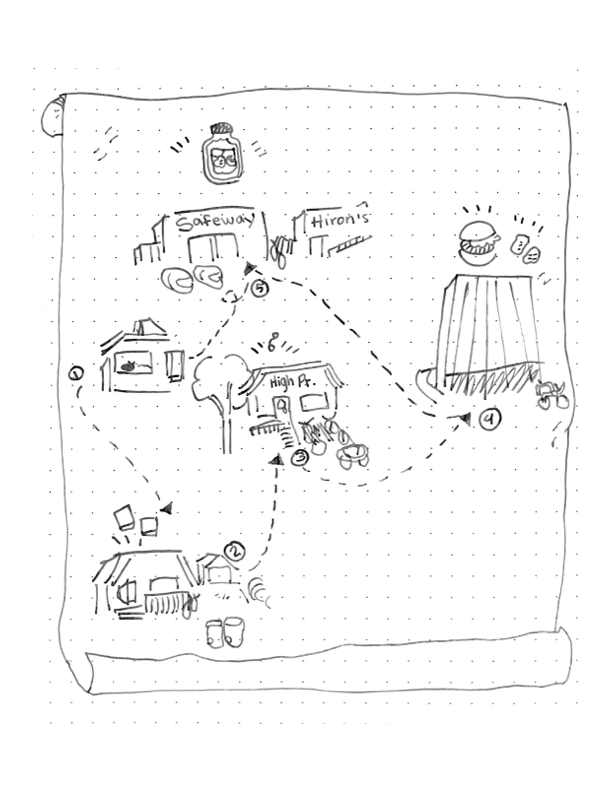 Safeway
Hiron's
5
1
High Pt.
4
3
2